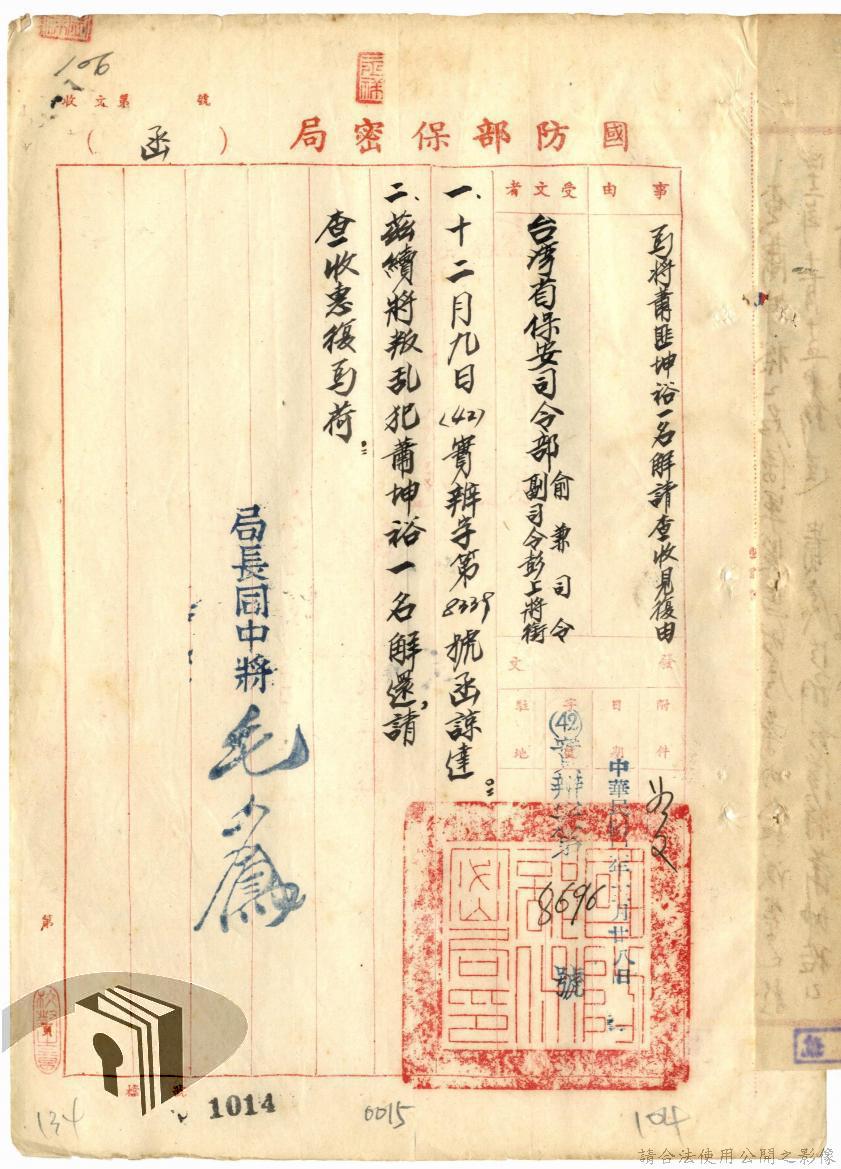 106
收文第　　號
國防部保密局（函）
事由
為將蕭匪坤裕一名解請查收見復由
受文者
台灣省保安司令部
俞兼司令
副司令彭上將銜
發文
附件
如文
日期
中華民國四二年十二月廿八日
字號
(42)實辦字第8696號
駐地
一、十二月九日(42)實辦字第8339號函諒達。
二、茲續將叛乱犯蕭坤裕一名解還，請
查收惠復為荷。
局長周中將毛人鳳
第
頁
檔號
1014
134
0015
104
請合法使用公開之影像